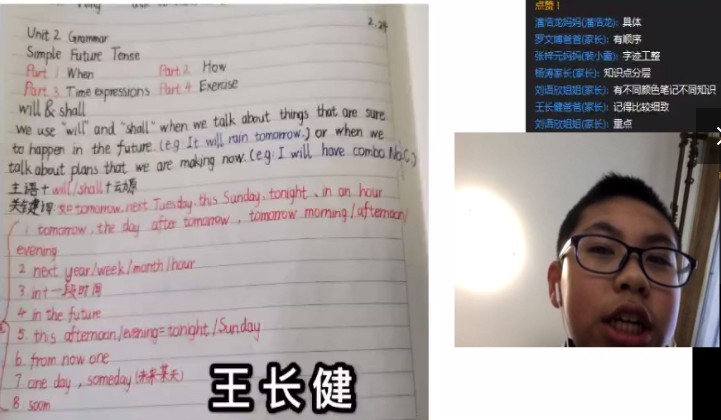 2.24
Unit 2 Grammar
Simple Future Tense
Part 1 When Part 2 How
Part 3 Time expressions Part 4 Exercise
will & shall
we use "will" and "shall" when we talk about things that are sure
to happen in the future. (eg: It will rain tomorrow.) or when we
talk about plans that we are making now. (eg: I will have combo No.C.)
主语+will/shall+动原
关键词: 如 tomorrow. next Tuesday. this Sunday. tonight. in an hour
1. tomorrow, the day after tomorrow, tomorrow morning/afternoon/
evening
2 next year/week/month/hour
3 in+一段时间
4 in the future
5. this afternoon/evening=tonight/Sunday
6. from now one
7. one day, someday (未来某天)
8. soon
王长健
点赞!
潘浩龙妈妈(潘浩龙): 具体
罗文博爸爸(家长): 有顺序
字迹工整
杨涛家长(家长): 知识点分层
刘语欣姐姐(家长): 有不同颜色笔记不同知识
王长健爸爸(家长): 记得比较细致
刘语欣姐姐(家长): 重点